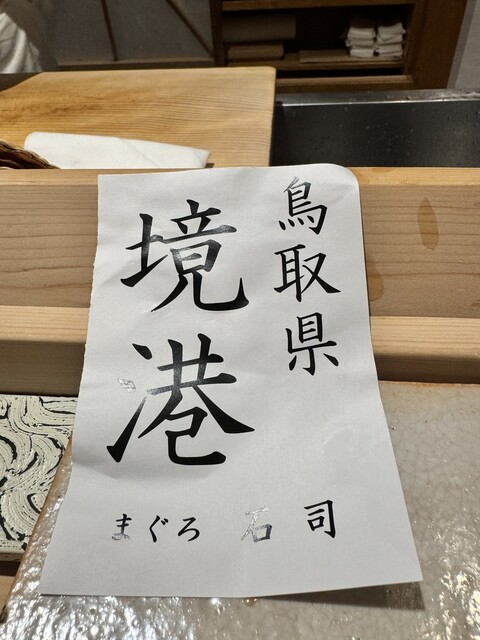 鳥取県
境港
まぐろ 石司